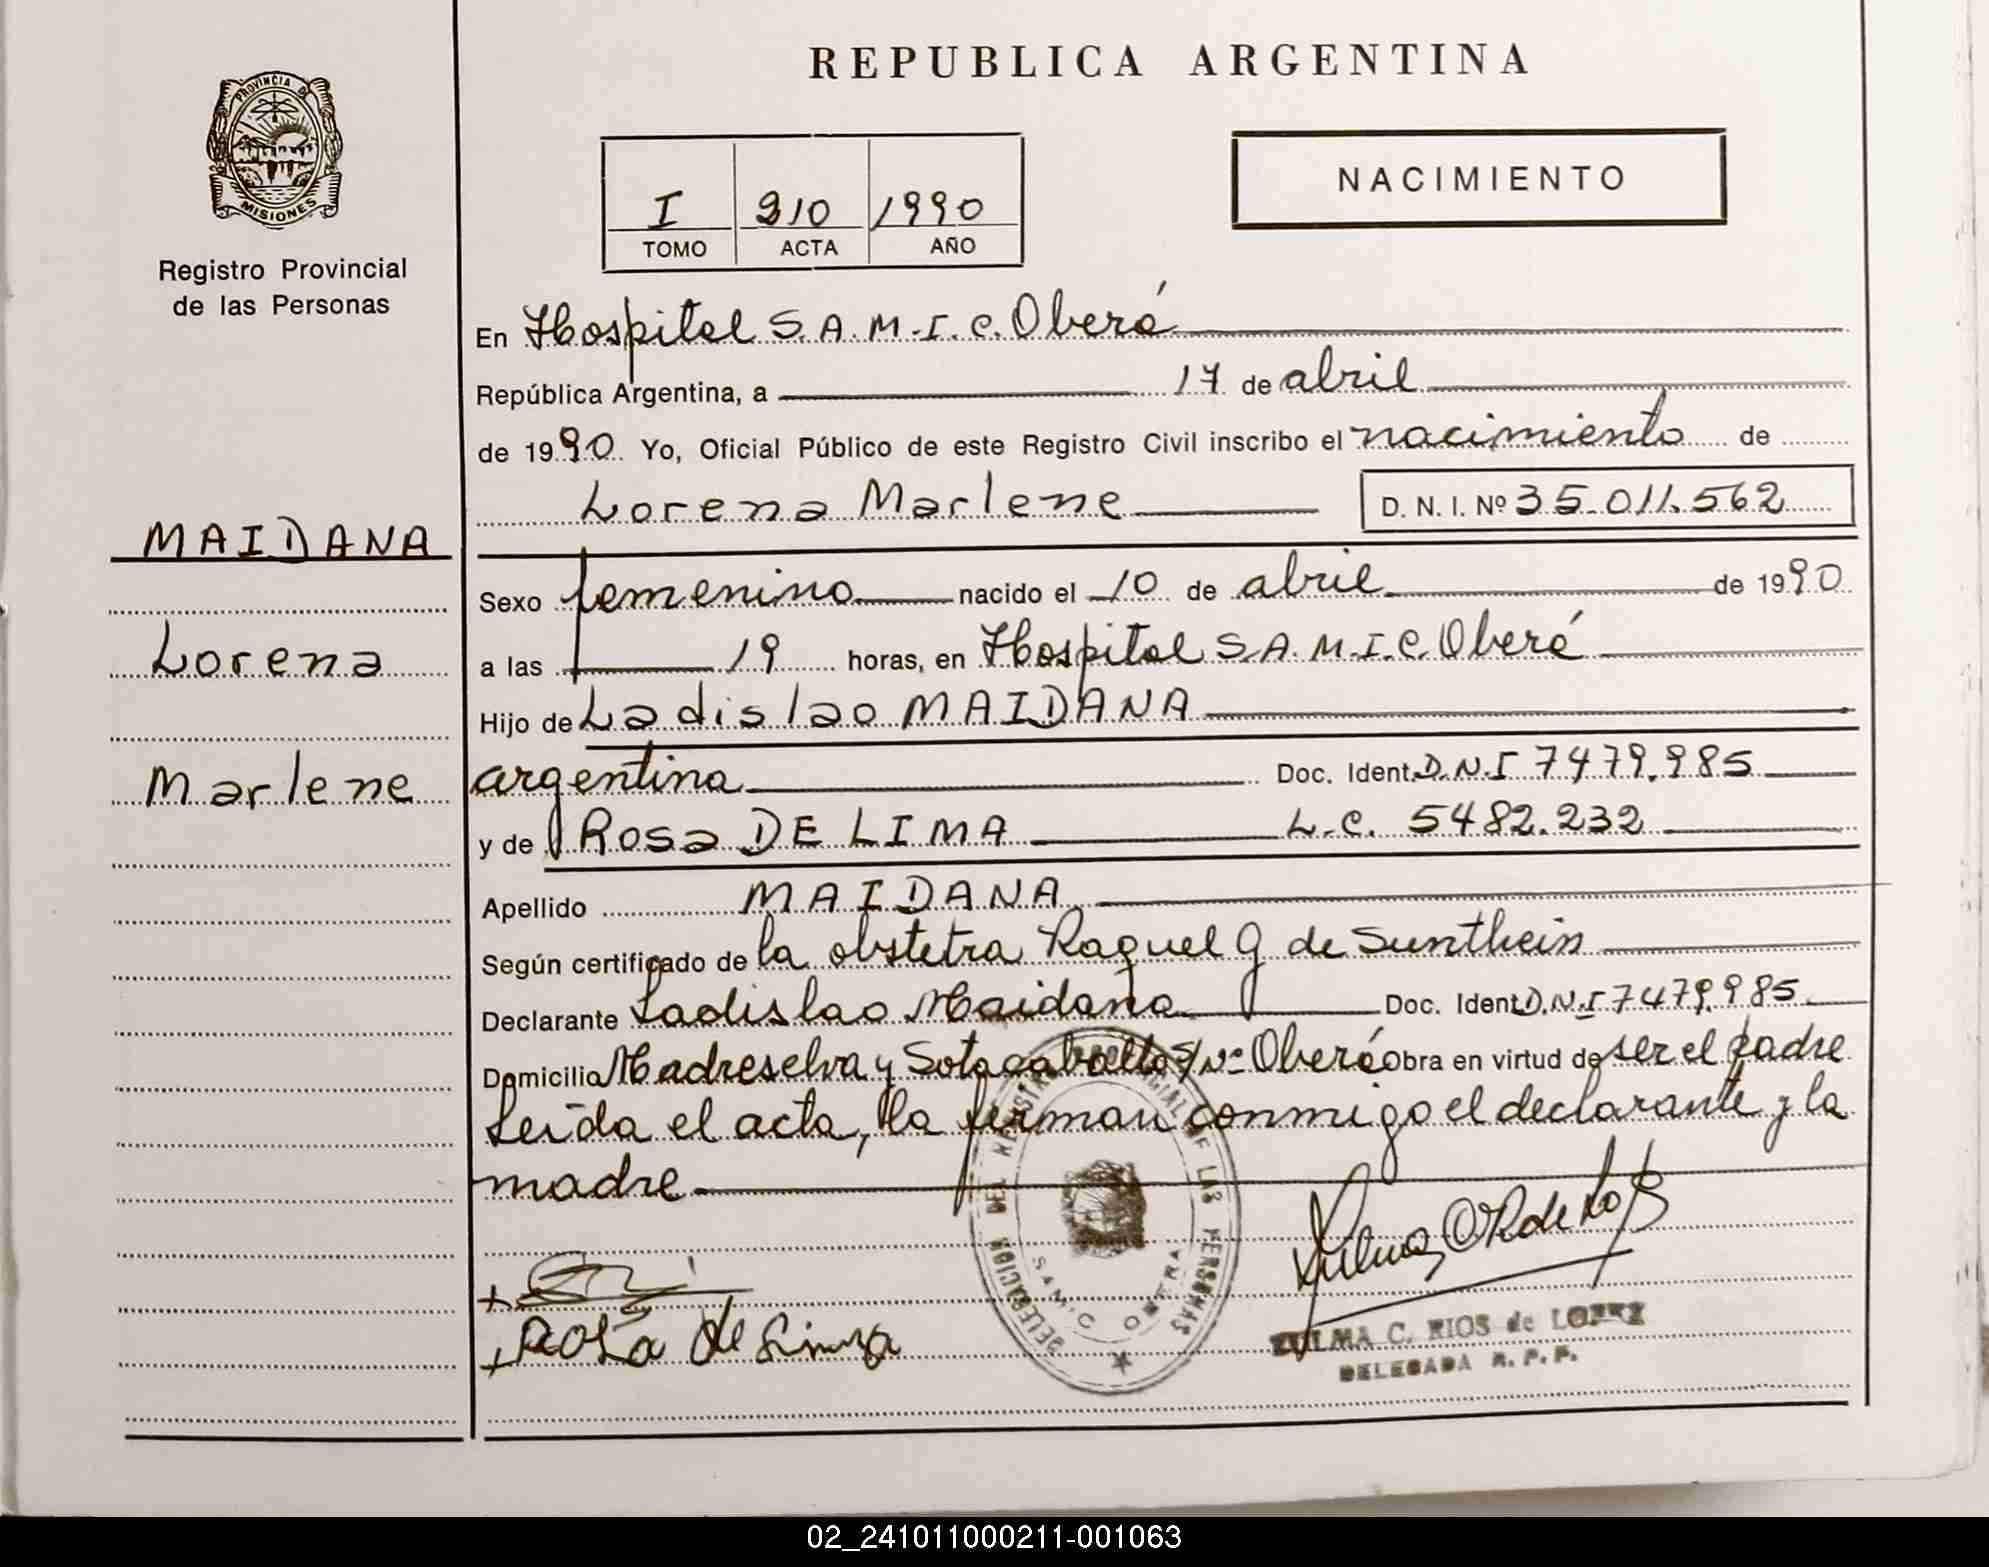 REPUBLICA ARGENTINA
PROVINCIA DE
MISIONES
Registro Provincial
de las Personas
NACIMIENTO
I 210 1990
TOMO ACTA AÑO
En Hospital S.A.M.I.C. Oberá
República Argentina, a 17 de abril
de 1990 Yo, Oficial Público de este Registro Civil inscribo el nacimiento de
Lorena Marlene D. N. I. Nº 35.011.562
MAIDANA
Lorena
Marlene
Sexo femenino nacido el 10 de abril de 1990
a las 19 horas, en Hospital S.A.M.I.C. Oberá
Hijo de Ladislao MAIDANA
argentina Doc. Ident. D.N.I 7479.985
y de Rosa DE LIMA L.C. 5482.232
Apellido MAIDANA
Según certificado de la obstetra Raquel G de Sunthein
Declarante Ladislao Maidana Doc. Ident. D.N.I 7479.985
Domicilio Madreselva y Sotacaballo S/Nº Oberá Obra en virtud de ser el padre
Leída el acta, la firman conmigo el declarante y la
madre
Rosa de Lima
DELEGACION DEL REGISTRO PROVINCIAL DE LAS PERSONAS
SAMIC OBERA
ZULMA C. RIOS de LOPEZ
DELEGADA R. P. P.
02_241011000211-001063